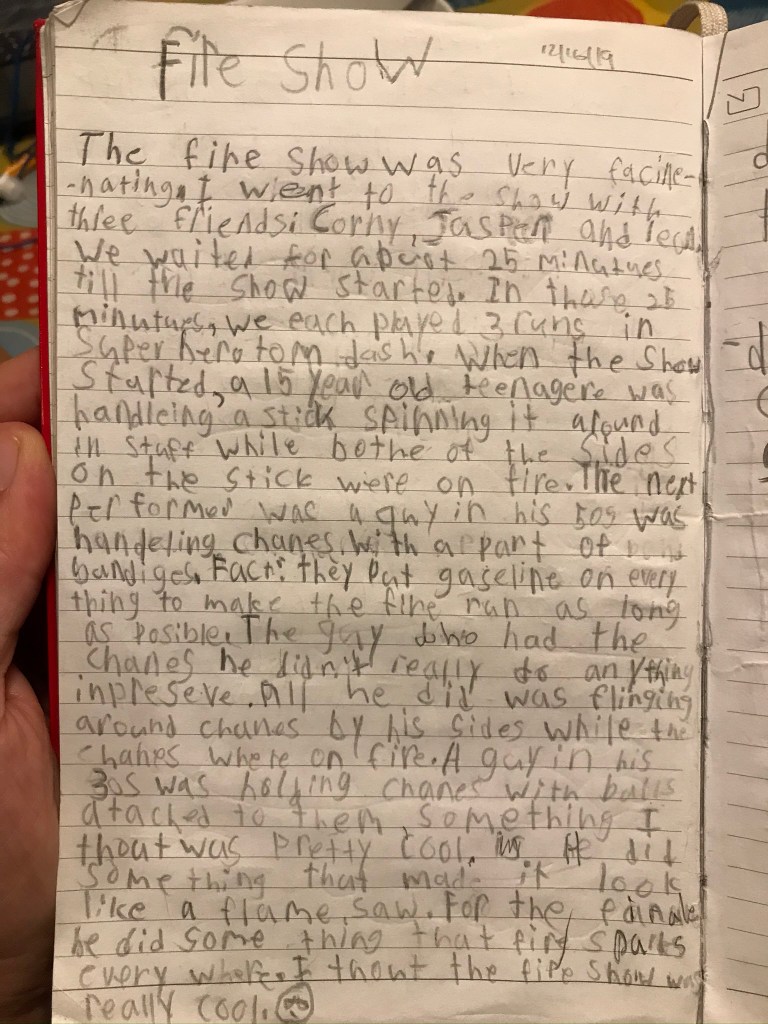 Fire Show
12/16/19
The fire show was very facine-
-nating. I wient to the show with
three friends: Corny, Jasper and
We waited for about 25 minutues
till the show started. In those 25
minutues, we each played 3 runs in
Super hero tom dash. When the show
started, a 15 year old teenagere was
handleing a stick spinning it around
in stuff while bothe of the sides
on the stick were on fire. The next
performer was a guy in his 50s was
handeling chanes. With a part of
bandiges. Fact: they put gaseline on every
thing to make the fire run as long
as posible. The guy who had the
chanes he didn't really do anything
inpreseve. All he did was flinging
around chanes by his sides while the
chanes where on fire. A guy in his
30s was holding chanes with balls
atached to them, something I
thout was pretty cool. He did
some thing that made it look
like a flame saw. For the fainale
he did some thing that fird sparks
every where. I thout the fire show was
really cool.
d
-d